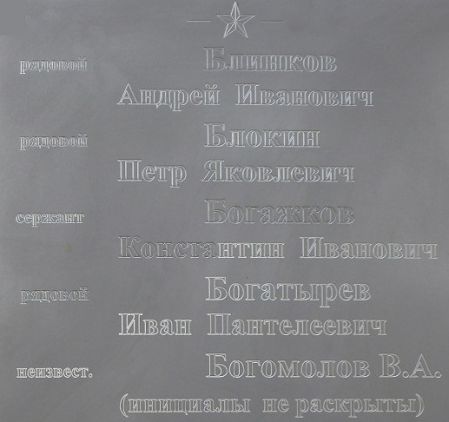 рядовой Блинков
Андрей Иванович
рядовой Блокин
Петр Яковлевич
сержант Богажков
Константин Иванович
рядовой Богатырев
Иван Пантелеевич
неизвест. Богомолов В.А.
(инициалы не раскрыты)